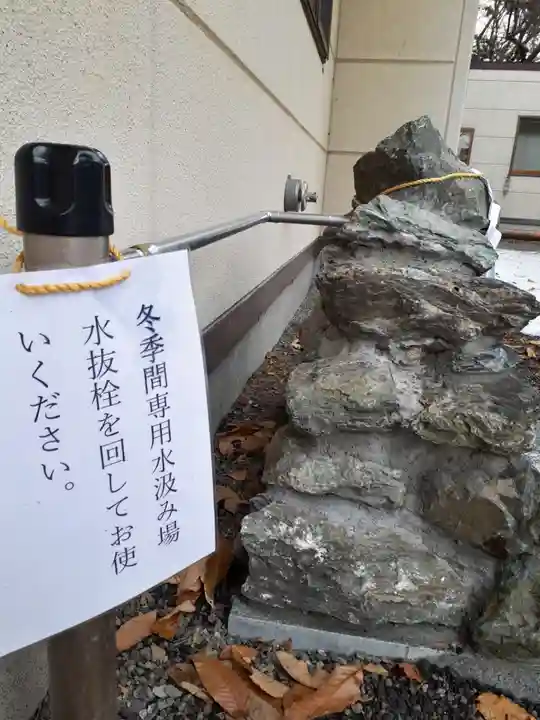 冬季間専用水汲み場
水抜栓を回してお使
いください。